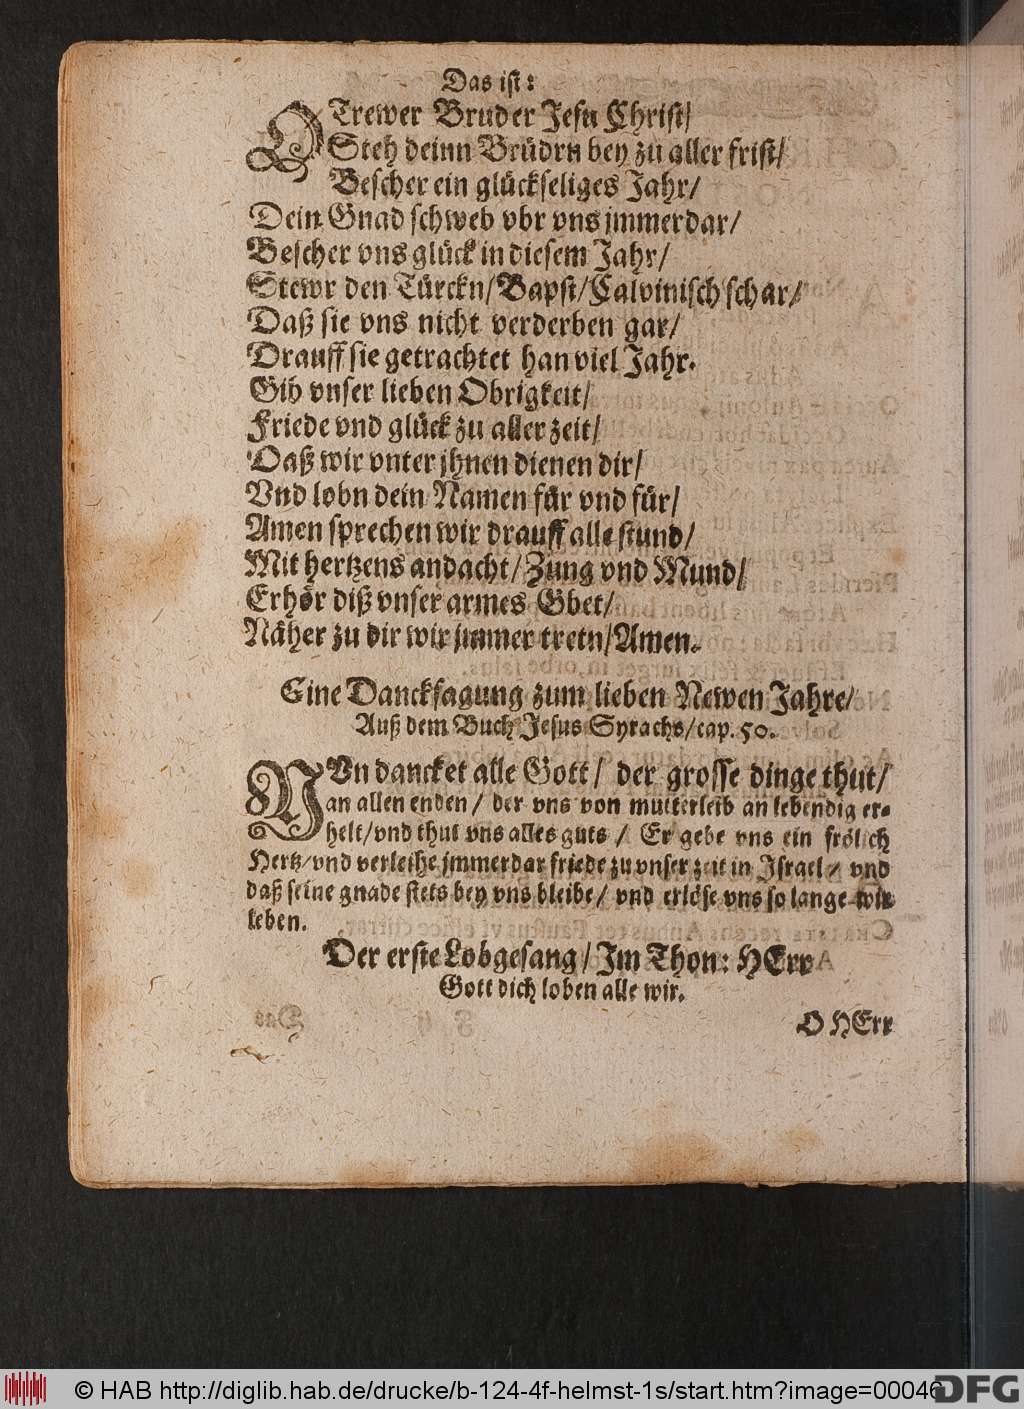 Das ist:
O Trewer Bruder Jesu Christ/
Steh deinn Brüdrn bey zu aller frist/
Bescher ein glückseliges Jahr/
Dein Gnad schweb vbr vns jmmerdar/
Bescher vns glück in diesem Jahr/
Stewr den Türckn/Bapst/Calvinisch schar/
Daß sie vns nicht verderben gar/
Drauff sie getrachtet han viel Jahr.
Gib vnser lieben Obrigkeit/
Friede vnd glück zu aller zeit/
Daß wir vnter jhnen dienen dir/
Vnd lobn dein Namen für vnd für/
Amen sprechen wir drauff alle stund/
Mit hertzens andacht/Zung vnd Mund/
Erhör diß vnser armes Gbet/
Näher zu dir wir jmmer tretn/Amen.
Eine Dancksagung zum lieben Newen Jahre/
Auß dem Buch Jesus Syrachs/cap. 50.
NVn dancket alle Gott/ der grosse dinge thut/
an allen enden/ der vns von mutterleib an lebendig er-
helt/vnd thut vns alles guts/ Er gebe vns ein frölich
Hertz/vnd verleihe jmmerdar friede zu vnser zeit in Israel/ vnd
daß seine gnade stets bey vns bleibe/ vnd erlöse vns so lange wir
leben.
Der erste Lobgesang/Im Thon: HErr
Gott dich loben alle wir.
O HErr
© HAB http://diglib.hab.de/drucke/b-124-4f-helmst-1s/start.htm?image=00046
DFG